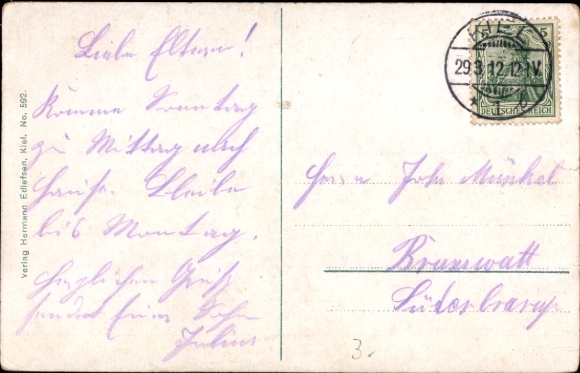 Liebe Eltern!
Komme Sonntag
zu Mittag nach
Hause. Bleibe
bis Montag.
Herzlichen Gruß
sendet Euer Sohn
Julius
Verlag Hermann Edlefsen, Kiel. No. 592.
KIEL
29.3.12.12-1V.
* 1
DEUTSCHES REICH
Herrn Joh. Münkel
Brunswatt